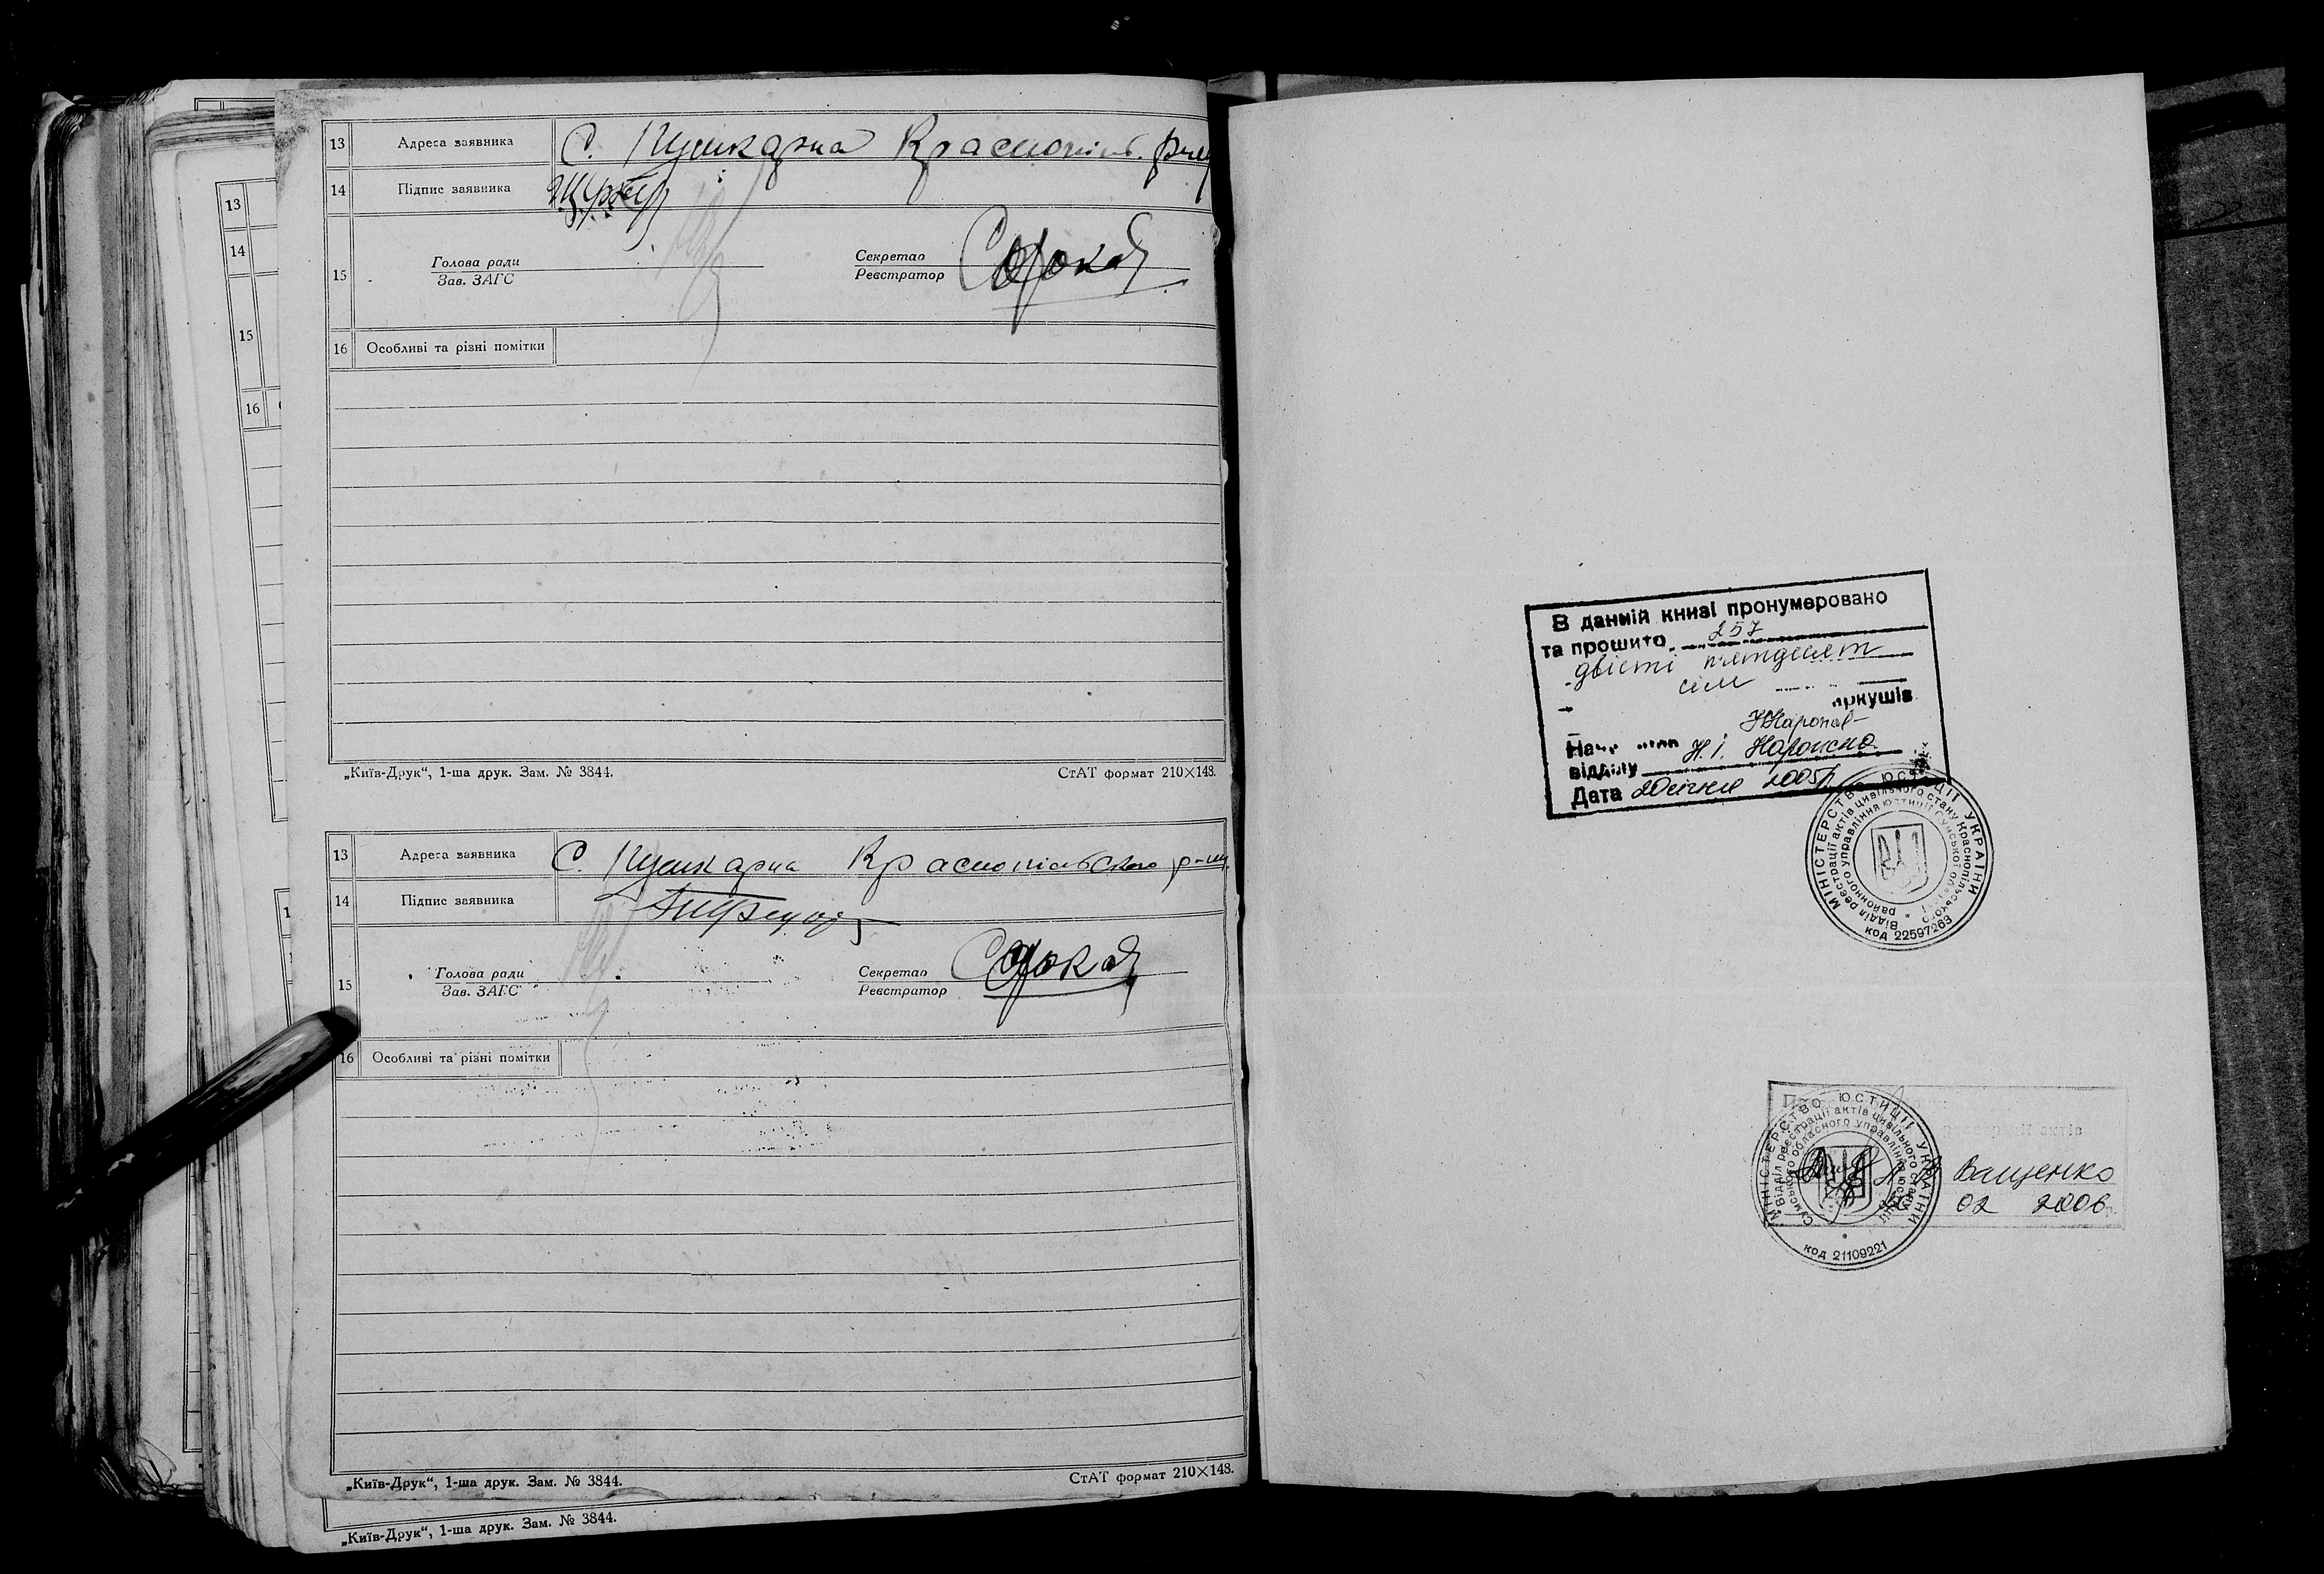 13 Адреса заявника С. Пушкарна Краснопіль.
14 Підпис заявника
15 Голова ради
Зав. ЗАГС
Секретар
Реєстратор
Сорока
16 Особливі та різні помітки
„Київ-Друк“, 1-ша друк. Зам. № 3844. СтАТ формат 210×148.
13 Адреса заявника С. Пушкарна Краснопільського р-ну.
14 Підпис заявника
15 Голова ради
Зав. ЗАГС
Секретар
Реєстратор
Сорока
16 Особливі та різні помітки
„Київ-Друк“, 1-ша друк. Зам. № 3844. СтАТ формат 210×148.
„Київ-Друк“, 1-ша друк. Зам. № 3844.
13
14
15
16
В данній книзі пронумеровано
та прошито 257
двісті пятдесят
сім
аркушів
відділу Н.І.
Дата 20 січня 2005р.
МІНІСТЕРСТВО ЮСТИЦІЇ УКРАЇНИ
Відділ реєстрації актів цивільного стану Краснопільського
районного управління юстиції Сумської області
код 22597263
МІНІСТЕРСТВО ЮСТИЦІЇ УКРАЇНИ
Відділ реєстрації актів цивільного стану
Сумського обласного управління юстиції
код 21109221
реєстрації актів
Ващенко
02 2006